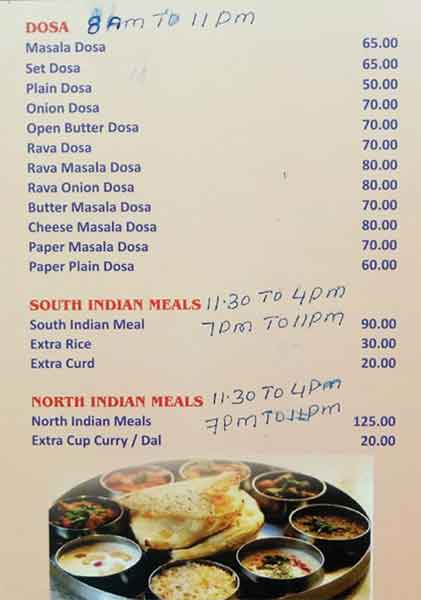 DOSA 8AM TO 11PM
Masala Dosa 65.00
Set Dosa 65.00
Plain Dosa 50.00
Onion Dosa 70.00
Open Butter Dosa 70.00
Rava Dosa 70.00
Rava Masala Dosa 80.00
Rava Onion Dosa 80.00
Butter Masala Dosa 70.00
Cheese Masala Dosa 80.00
Paper Masala Dosa 70.00
Paper Plain Dosa 60.00
SOUTH INDIAN MEALS 11.30 TO 4PM
South Indian Meal 7PM TO 11PM 90.00
Extra Rice 30.00
Extra Curd 20.00
NORTH INDIAN MEALS 11.30 TO 4PM
North Indian Meals 7PM TO 11PM 125.00
Extra Cup Curry / Dal 20.00